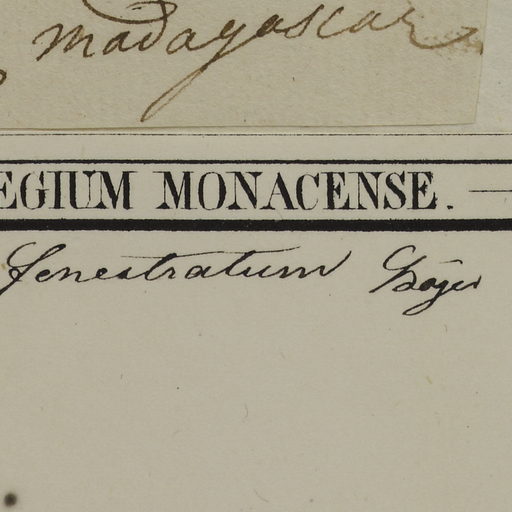 madagascar
EGIUM MONACENSE.
fenestratum Bojer